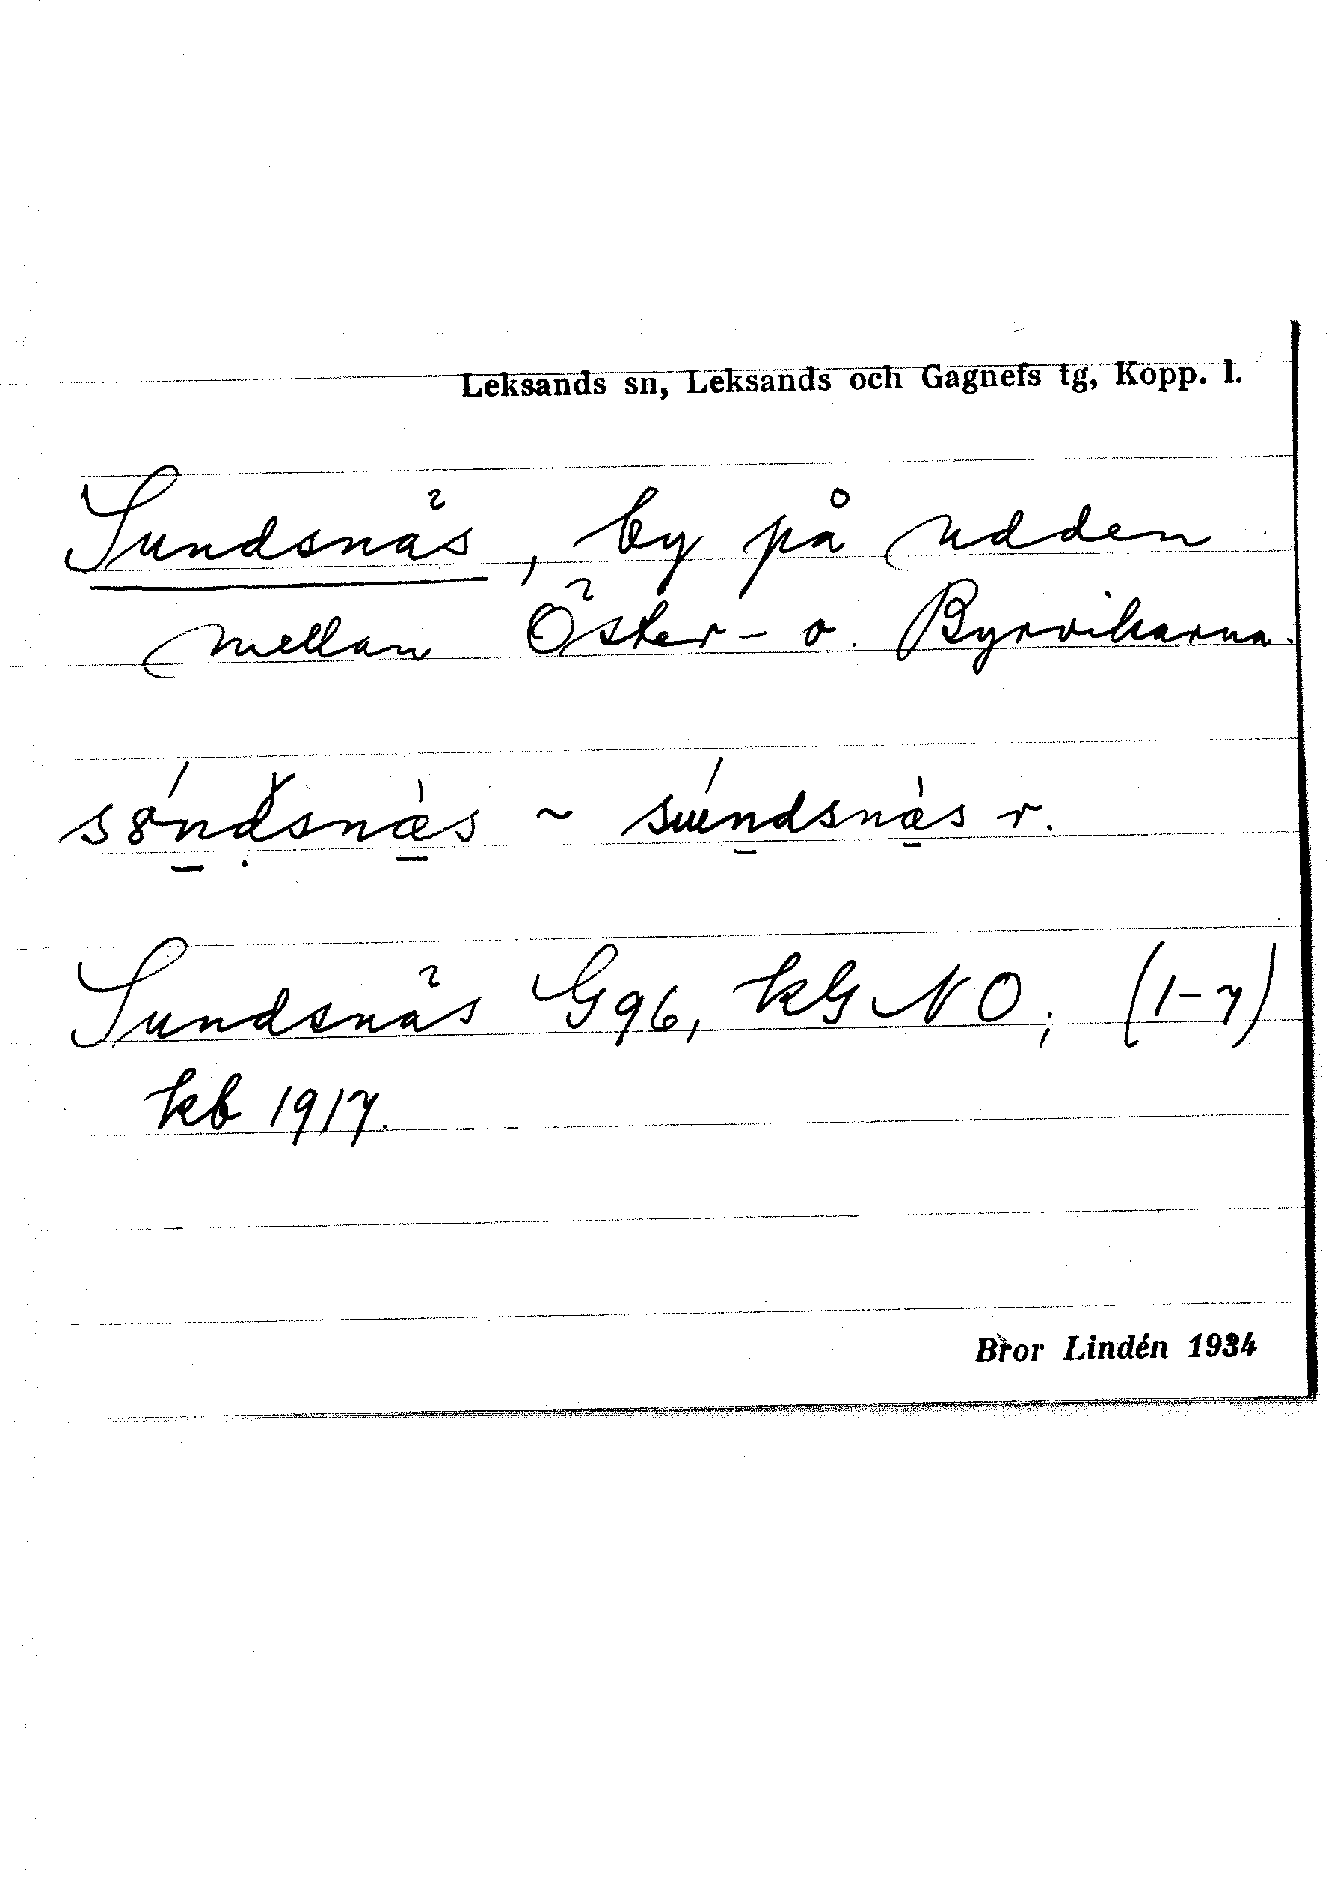 Leksands sn, Leksands och Gagnefs tg, Kopp. l.
Sundsnäs, by på udden
mellan Öster- o. Byrvikarna.
söndsnæs ~ sundsnäs r.
Sundsnäs G96, kG NO; (1-7)
kb 1917.
Bror Lindén 1934